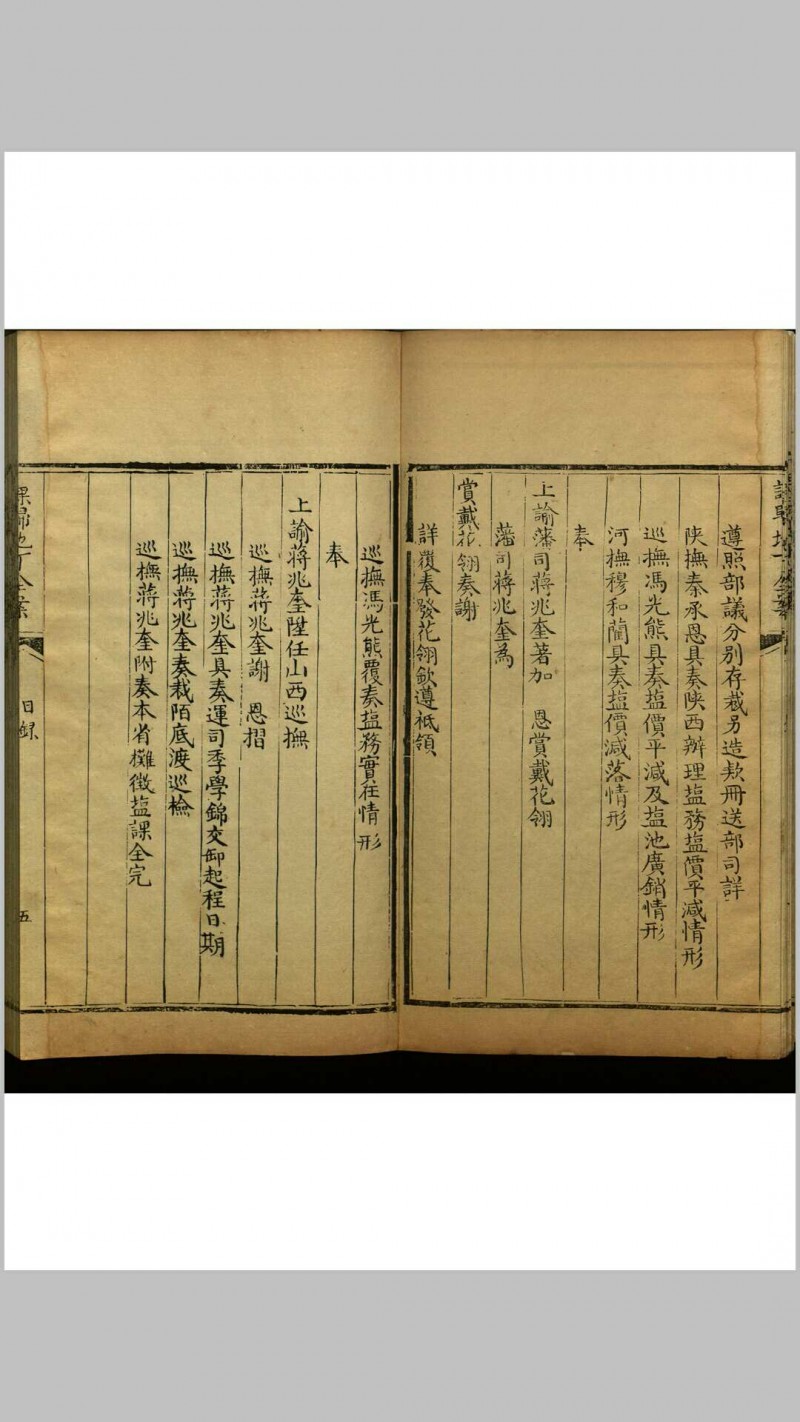 遵照部議分別存裁另造欵冊送部司詳
陕撫秦承恩具奏陕西辦理塩務塩價平減情形
巡撫馮光熊具奏塩價平減及塩池廣銷情形
河撫穆和藺具奏塩價減落情形
奉
上諭藩司蔣兆奎著加 恩賞戴花翎
藩司蔣兆奎為
賞戴花翎奏謝
詳覆奉發花翎欽遵祗領
巡撫馮光熊覆奏塩務實在情形
奉
上諭蔣兆奎陞任山西巡撫
巡撫蔣兆奎謝 恩摺
巡撫蔣兆奎具奏運司季學錦交卸起程日期
巡撫蔣兆奎奏裁陌底渡巡檢
巡撫蔣兆奎附奏本省攤徵塩課全完
課歸地丁全案
目録
五